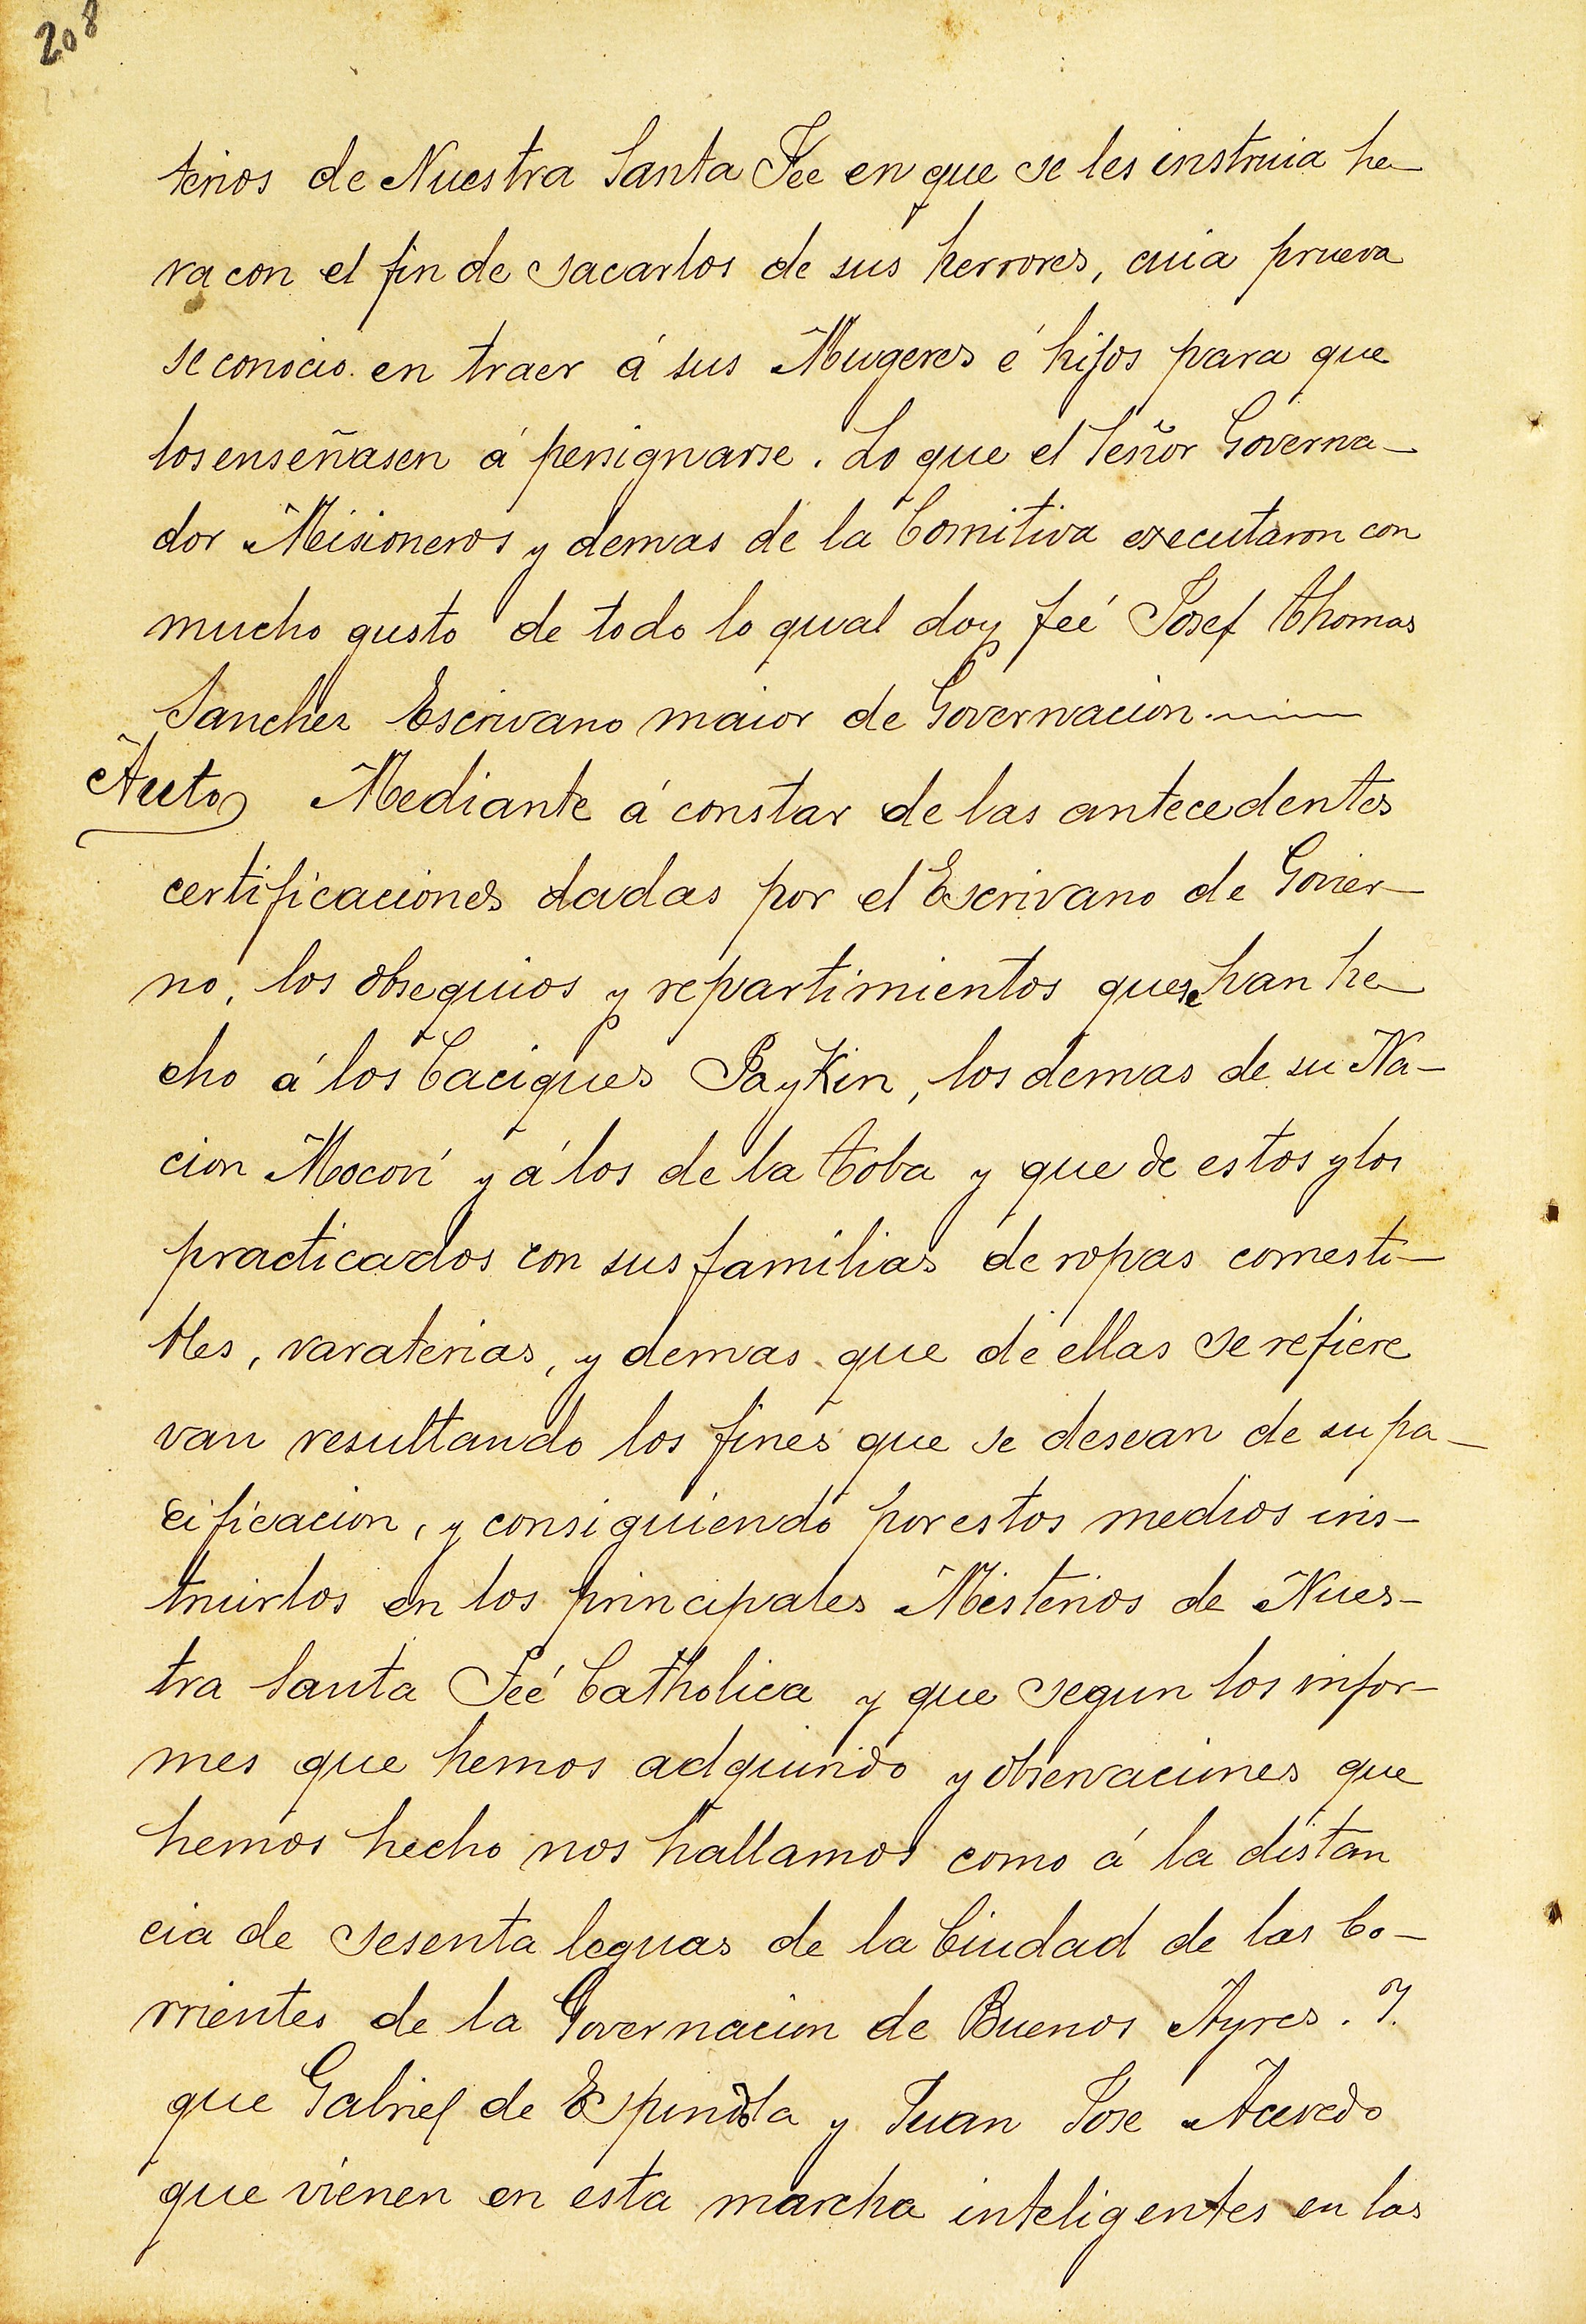 208
terios de Nuestra Santa Fee en que se les instruia he-
ra con el fin de sacarlos de sus herrores, cuia prueva
se conocio en traer á sus Mugeres é hijos para que
los enseñasen á persignarse. Lo que el Señor Governa-
dor Misioneros y demas de la Comitiva executaron con
mucho gusto de todo lo qual doy feé Josef Thomas
Sanchez Escrivano maior de Governacion.
Auto Mediante á constar de las antecedentes
certificaciones dadas por el Escrivano de Govier-
no, los obsequios y repartimientos que se han he-
cho á los Caciques PayKin, los demas de su Na-
cion Mocoví y á los de la Toba y que de estos y los
practicados con sus familias de ropas comesti-
bles, varaterias, y demas que de ellas se refiere
van resultando los fines que se desean de su pa-
cificacion, y consiguiendo por estos medios ins-
truirlos en los principales Misterios de Nues-
tra Santa Feé Catholica y que segun los infor-
mes que hemos adquirido y observaciones que
hemos hecho nos hallamos como á la distan
cia de sesenta leguas de la Ciudad de las Co-
rrientes de la Governacion de Buenos Ayres. Y.
que Gabriel de Espindola y Juan Jose Acevedo
que vienen en esta marcha inteligentes en las